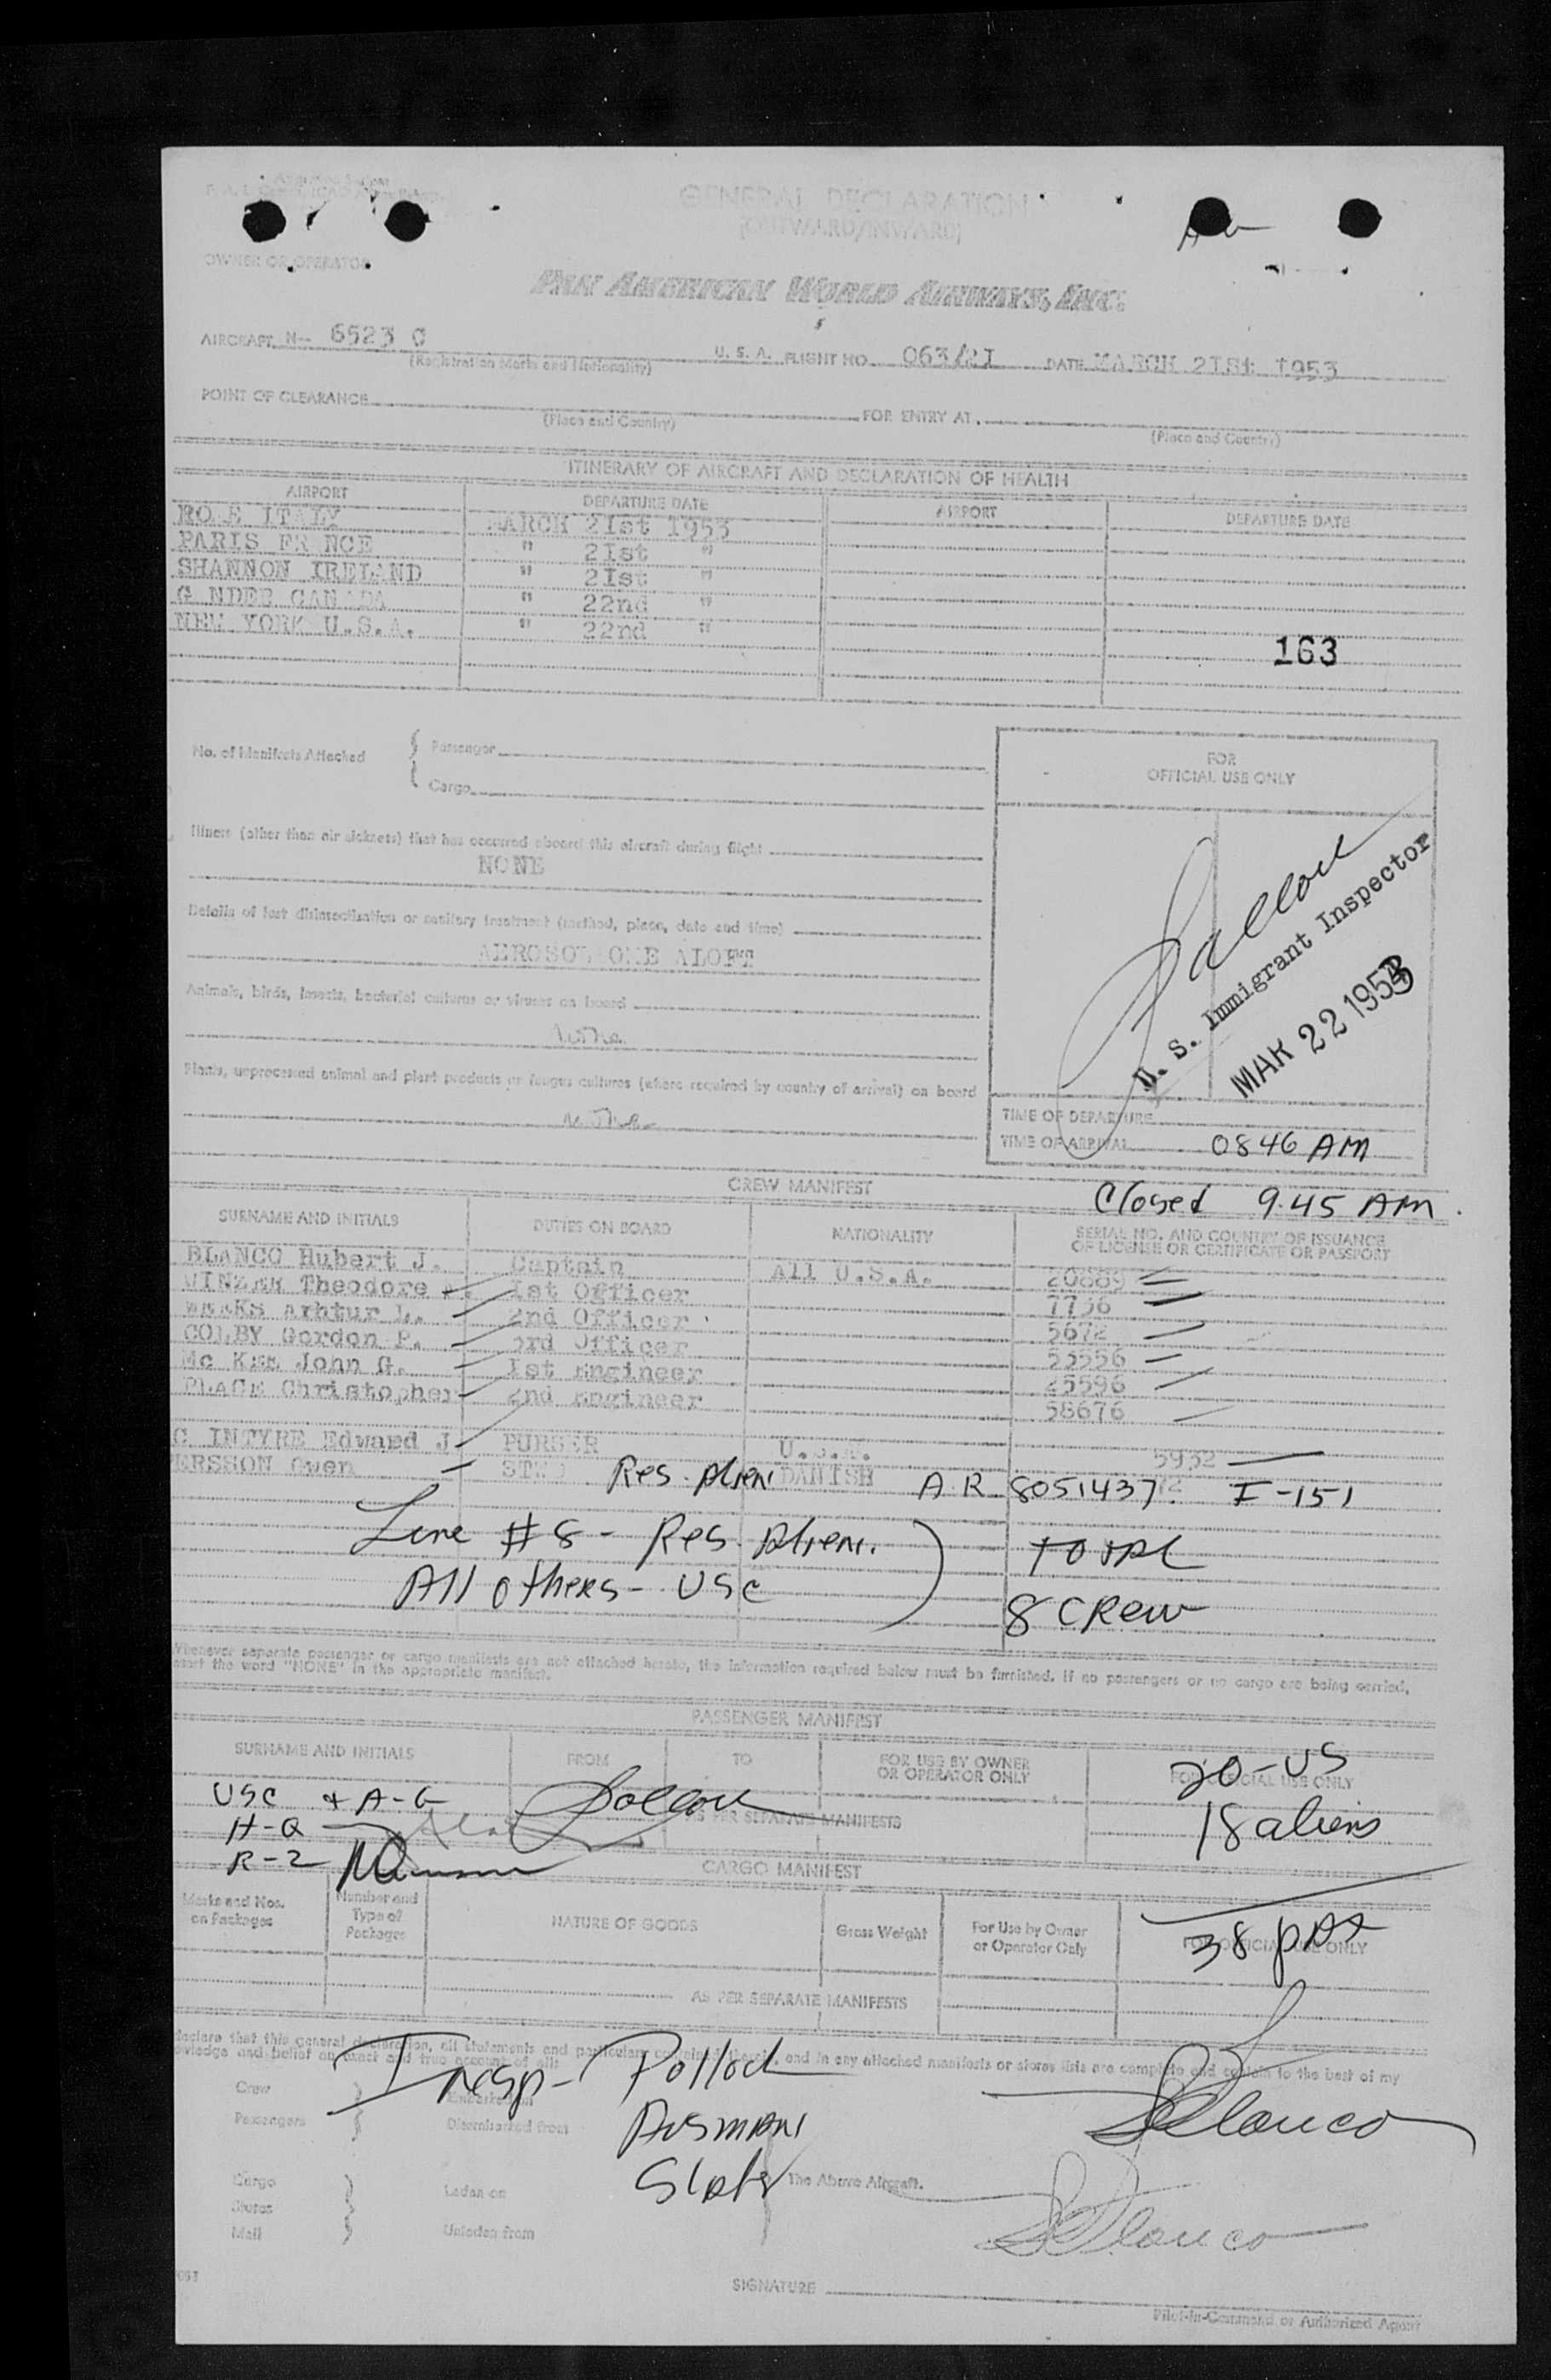 GENERAL DECLARATION
(OUTWARD/INWARD)
OWNER OR OPERATOR
PAN AMERICAN WORLD AIRWAYS, INC.
AIRCRAFT N- 6523 C U. S. A. FLIGHT NO. 063/21 DATE MARCH 21St 1953
(Registration Marks and Nationality)
POINT OF CLEARANCE FOR ENTRY AT
(Place and Country) (Place and Country)
ITINERARY OF AIRCRAFT AND DECLARATION OF HEALTH
AIRPORT DEPARTURE DATE AIRPORT DEPARTURE DATE
RO E ITALY MARCH 21st 1953
PARIS FRANCE " 21st "
SHANNON IRELAND " 21st "
GANDER CANADA " 22nd "
NEW YORK U.S.A. " 22nd "
163
No. of Manifests Attached
Passenger
Cargo
FOR
OFFICIAL USE ONLY
Illness (other than air sickness) that has occurred aboard this aircraft during flight
NONE
Details of last disinsectisation or sanitary treatment (method, place, date and time)
AEROSOL ONE ALOFT
Animals, birds, insects, bacterial cultures or viruses on board
Plants, unprocessed animal and plant products or fungus cultures (where required by country of arrival) on board
U. S. Immigrant Inspector
MAR 22 1953
TIME OF DEPARTURE
TIME OF ARRIVAL 0846 AM
Closed 9.45 AM.
CREW MANIFEST
SURNAME AND INITIALS DUTIES ON BOARD NATIONALITY SERIAL NO. AND COUNTRY OF ISSUANCE
OF LICENSE OR CERTIFICATE OR PASSPORT
BLANCO Hubert J. Captain All U.S.A. 20889
Theodore 1st Officer 7736
WEAKS Arhtur L. 2nd Officer 5672
COLBY Gordon P. 3rd Officer 53556
Mc KEE John G. 1st Engineer 25596
PLACE Christopher 2nd Engineer 58676
C INTYRE Edward J PURSER U.S.A. 5932
ERSHON Owen STWD Res. Alien DANISH A R 8051437 I-151
Line #8 - Res. Alien.
All others - USC
total
8 crew
Whenever separate passenger or cargo manifests are not attached hereto, the information required below must be furnished. If no passengers or no cargo are being carried,
insert the word "NONE" in the appropriate manifest.
PASSENGER MANIFEST
SURNAME AND INITIALS FROM TO FOR USE BY OWNER
OR OPERATOR ONLY FOR OFFICIAL USE ONLY
20-US
18 aliens
USC + A-G
H-Q
R-2
AS PER SEPARATE MANIFESTS
CARGO MANIFEST
Marks and Nos.
on Packages
Number and
Type of
Packages
NATURE OF GOODS
Gross Weight
For Use by Owner
or Operator Only
FOR OFFICIAL USE ONLY
38 pax
AS PER SEPARATE MANIFESTS
declare that this general declaration, all statements and particulars contained therein, and in any attached manifests or stores lists are complete and contain to the best of my
knowledge and belief an exact and true account of all:
Insp- Pollock
Ausman
Slater
Crew
Passengers
Embarked on
Disembarked from
Cargo
Stores
Mail
Laden on
Unladen from
The Above Aircraft.
Blanco
Blanco
SIGNATURE
Pilot-in-Command or Authorized Agent